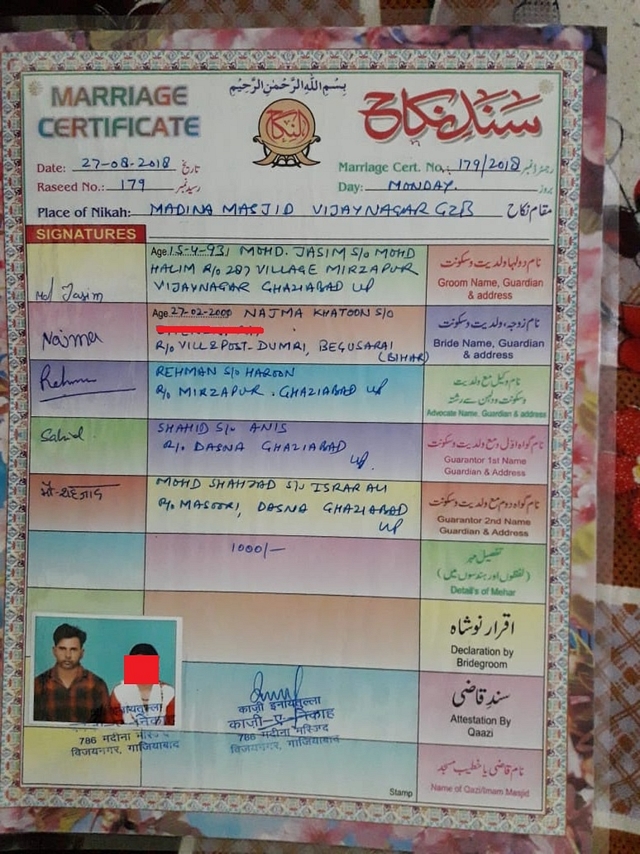 بِسْمِ اللّٰهِ الرَّحْمٰنِ الرَّحِيْمِ
MARRIAGE CERTIFICATE
النکاح
سَنَدِ نِکَاح
Date: 27-08-2018 تاریخ
Marriage Cert. No. 179/2018 رجسٹر نمبر
Raseed No.: 179 رسید نمبر
Day: MONDAY. بروز
Place of Nikah: MADINA MASJID VIJAYNAGAR GZB مقام نکاح
SIGNATURES
Md Jasim
Age 15-4-93, MOHD. JASIM S/O MOHD
HALIM R/O 287 VILLAGE MIRZAPUR
VIJAYNAGAR GHAZIABAD UP
نام دولہا ولدیت و سکونت
Groom Name, Guardian
& address
Najma
Age 27-02-2000 NAJMA KHATOON S/O
R/O VILL & POST- DUMRI, BEGUSARAI
(BIHAR)
نام زوجہ، ولدیت و سکونت
Bride Name, Guardian
& address
REHMAN S/O HAROON
R/O MIRZAPUR. GHAZIABAD UP
نام وکیل مع ولدیت
وسکونت و دلہن سے رشتہ
Advocate Name, Guardian & address
SHAHID S/O ANIS
R/O DASNA GHAZIABAD
UP.
نام گواہ اوّل مع ولدیت و سکونت
Guarantor 1st Name
Guardian & Address
MOHD SHAHZAD S/O ISRAR ALI
R/O MASOORI, DASNA GHAZIABAD
UP
نام گواہ دوم مع ولدیت و سکونت
Guarantor 2nd Name
Guardian & Address
1000/-
تفصیل مہر
(لفظوں اور ہندسوں میں)
Detail's of Mehar
اقرار نوشاہ
Declaration by
Bridegroom
काज़ी इनायतुल्ला
काजी-ए-निकाह
786 मदीना मस्जिद
विजयनगर, गाजियाबाद
786 मदीना मस्जिद
विजयनगर, गाजियाबाद
سندِ قاضی
Attestation By
Qaazi
Stamp
نام قاضی یا خطیب مسجد
Name of Qazi/Imam Masjid